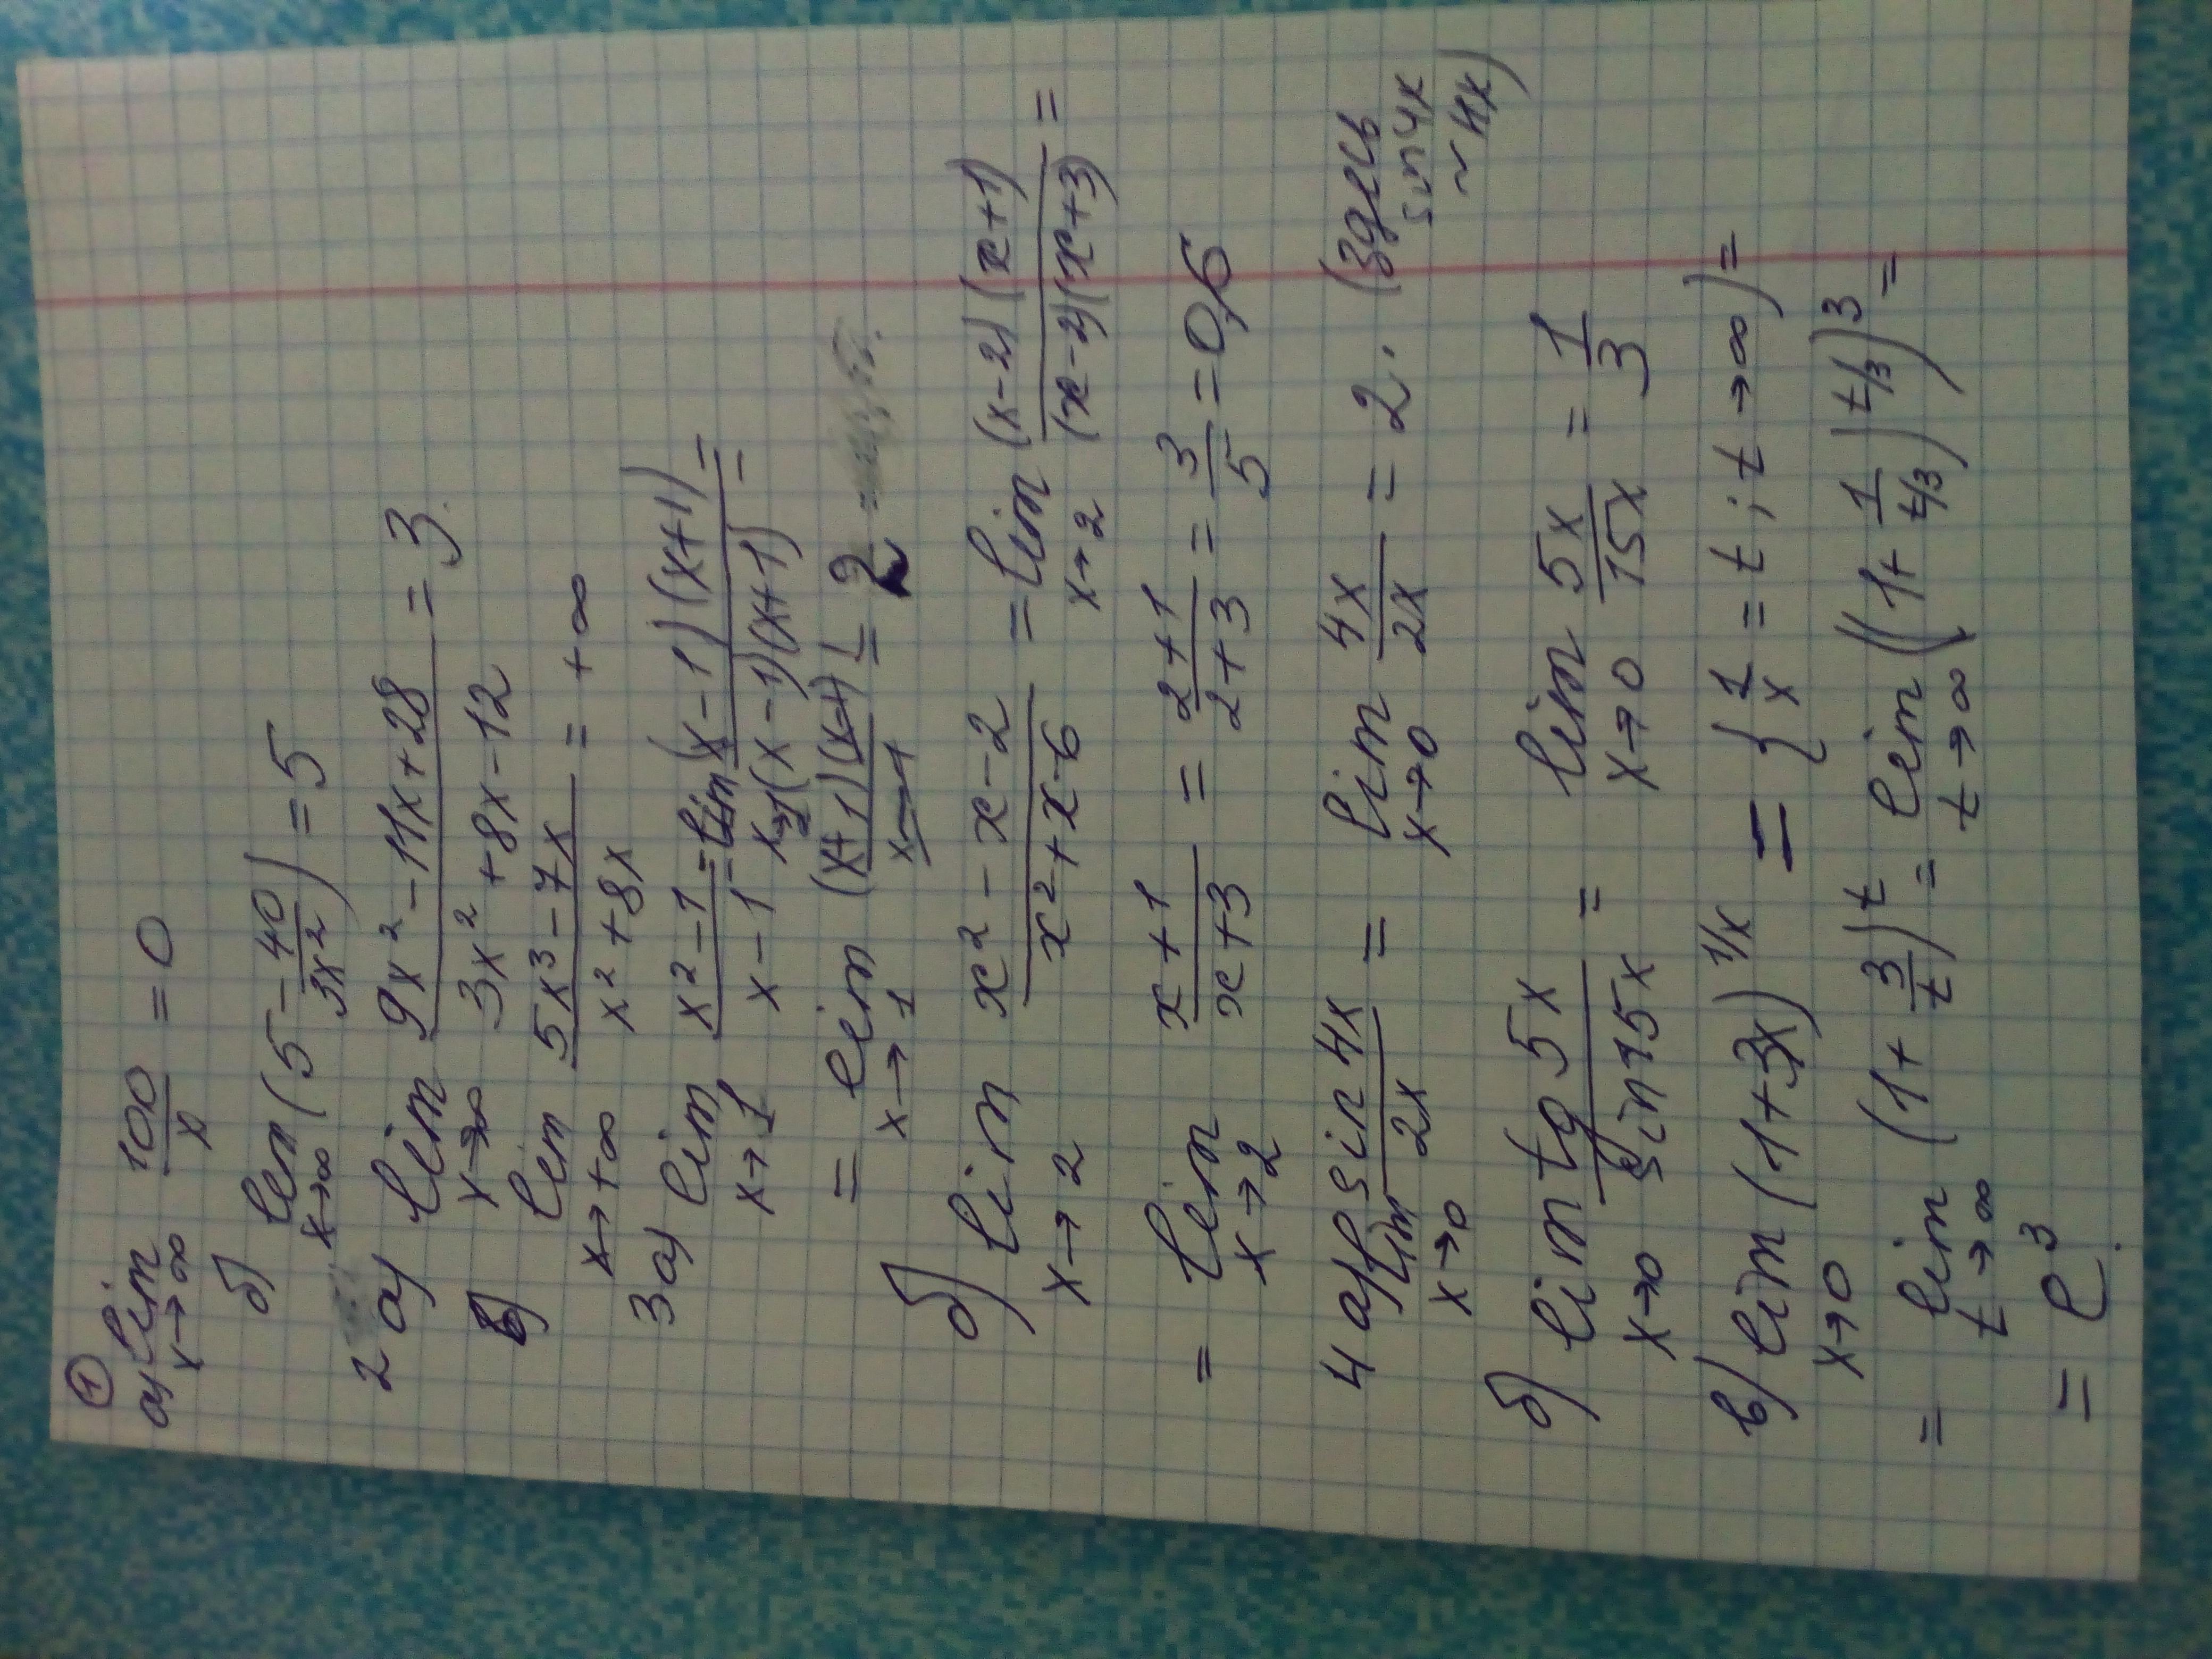 ①
а) lim x→∞ 100/x = 0
б) lim x→∞ (5 - 40/3x²) = 5
2 а) lim x→∞ (9x² - 11x + 28)/(3x² + 8x - 12) = 3.
б) lim x→+∞ (5x³ - 7x)/(x² + 8x) = +∞
3 а) lim x→1 (x² - 1)/(x - 1) = lim x→1 (x - 1)(x+1)/(x - 1)(x+1) =
= lim x→1 (x+1)(x-1)/(x-1) = 2
б) lim x→2 (x² - x - 2)/(x² + x - 6) = lim x→2 (x-2)(x+1)/(x-2)(x+3) =
= lim x→2 (x+1)/(x+3) = (2+1)/(2+3) = 3/5 = 0,6
4 а) lim x→0 sin 4x/2x = lim x→0 4x/2x = 2. (здесь sin4x ~ 4x)
б) lim x→0 tg 5x/sin 15x = lim x→0 5x/15x = 1/3
в) lim x→0 (1+3x)^1/x = {1/x = t; t→∞) =
= lim t→∞ (1 + 3/t)^t = lim t→∞ ((1 + 1/t/3)^t/3)³ =
= e³.